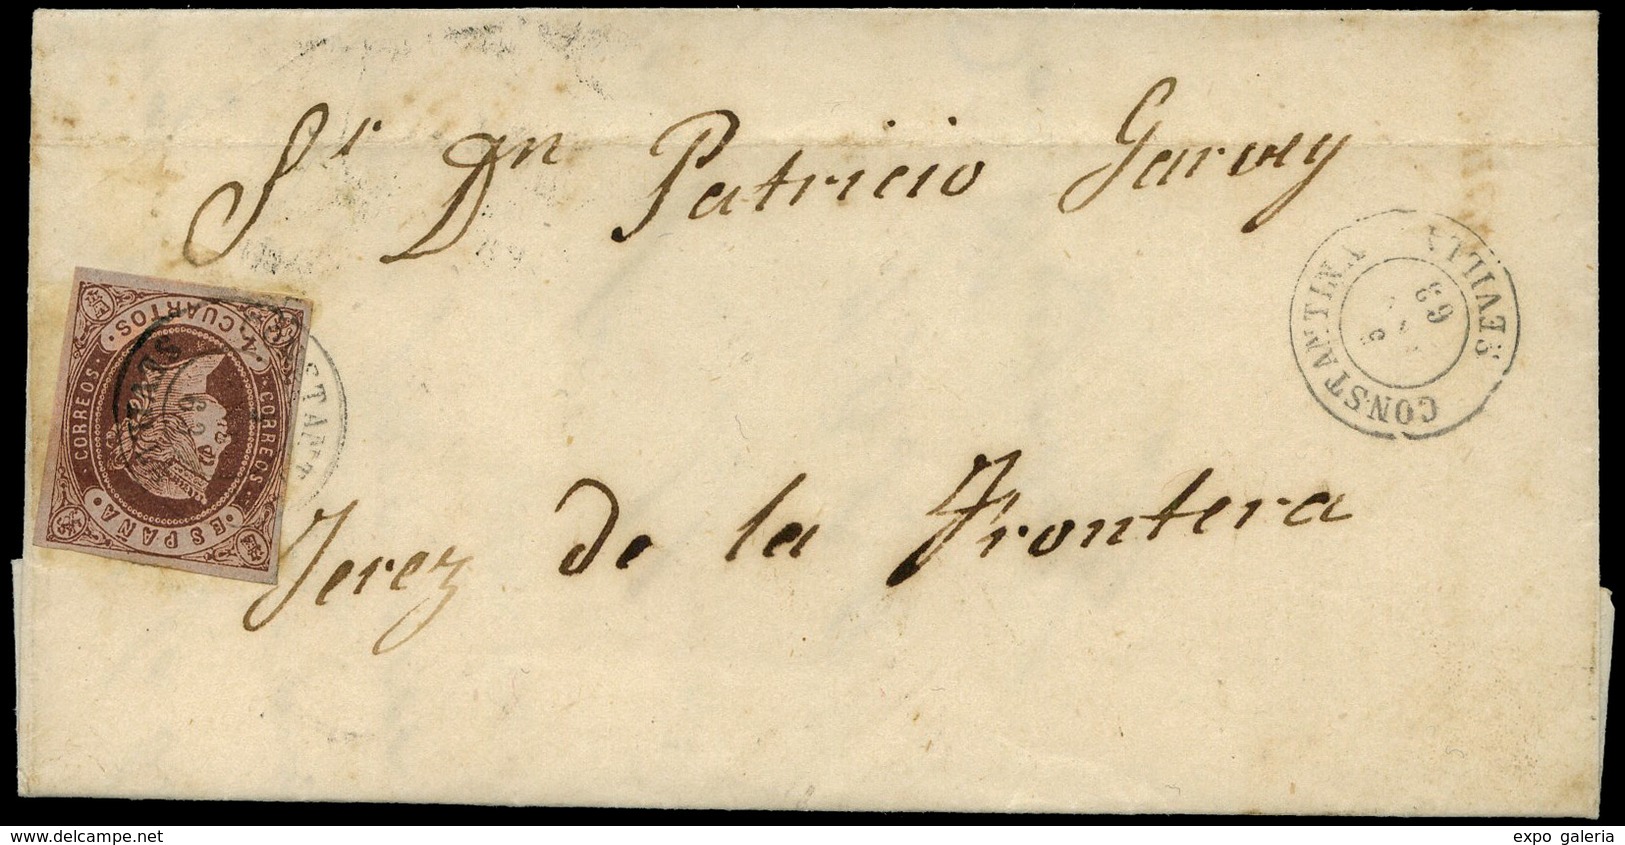 Sr Dn Patricio Garvey
Jerez de la Frontera
4 CUARTOS
CORREOS
CORREOS
ESPAÑA
CONSTANTINA
SEVILLA
63
www.delcampe.net
expo galeria